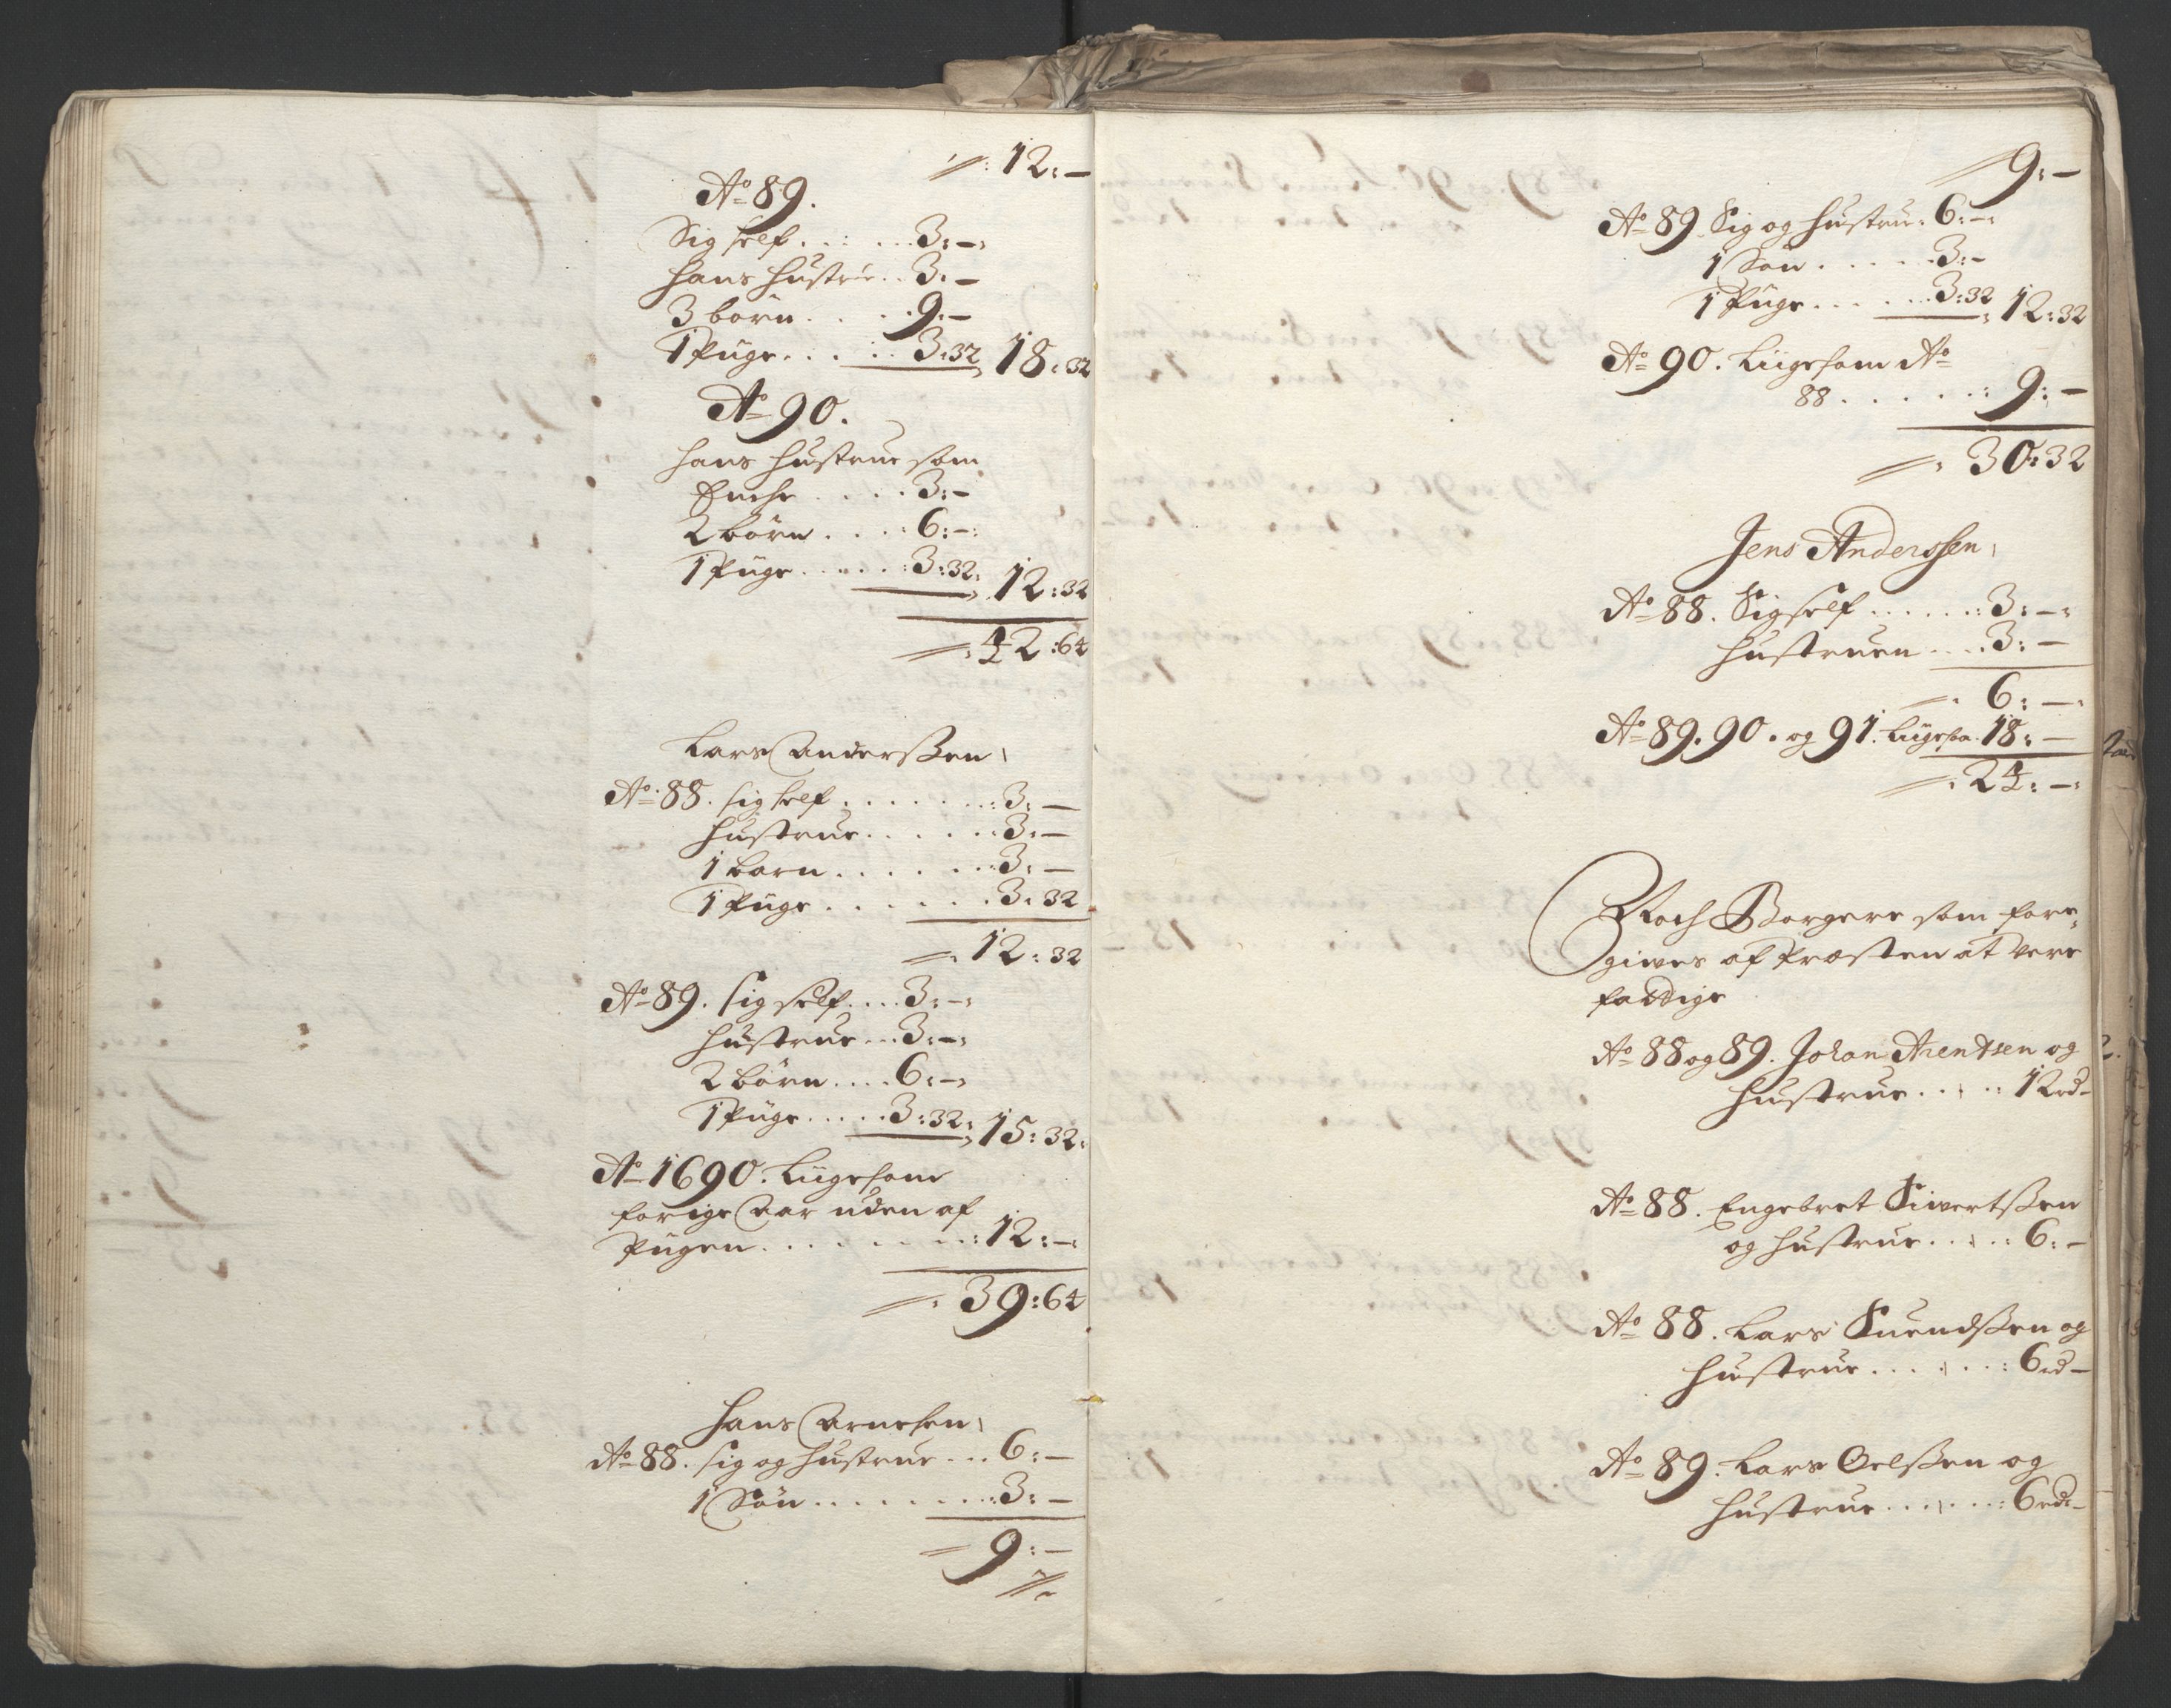 12:—
Ao 89.
Sig self . . . . . 3:—:
Hans Hustrue . . 3:—
3 børn . . . . 9:—
1 Pige . . . . . 3:32 18:32
Ao 90.
Hans Hustrue som
Enche . . . . 3:—
2 børn . . . . 6:—:
1 Pige . . . . . 3:32: 12:32
42:64
Lars Anderssen
Ao 88. sig self . . . . . . . 3:—
Hustrue . . . . . 3:—
1 barn . . . . . . 3:—
1 Pige . . . . . . 3:32
12:32
Ao 89. sig self . . . 3:—:
Hustrue . . . 3:—:
2 børn . . . . 6:—:
1 Pige . . . . . 3:32: 15:32:
Ao 1690. Liigesom
forige Aar uden af
Pigen . . . . . . . . 12:—:
39:64
Hans Arnesen
Ao 88. sig og Hustrue . . . 6:—
1 Søn . . . . . . . . 3:—
9:—
9:—
Ao 89 Sig og Hustrue: 6:—:
1 Søn . . . . . 3:—
1 Pige . . . . . 3:32 12:32
Ao 90. Liigesom Ao
88 . . . . . . 9:—
30:32
Jens Anderssen
Ao 88. Sig self . . . . . . 3:—:
Hustruen . . . . 3:—
6:—:
Ao 89. 90. og 91. Liigesom 18:—
24:—:
Noch Borgere som fore-
gives af Præsten at vere
fattige
Ao 88 og 89. Johan Arentsen og
Hustrue . . . . . 12 rd—
Ao 88. Engebret Sivertssen
og Hustrue . . . . . 6:—
Ao 88. Lars Suendssen og
Hustrue . . . . . . . 6 rd—
Ao 89. Lars Oelssen og
Hustrue . . . . . . . 6 rd:—